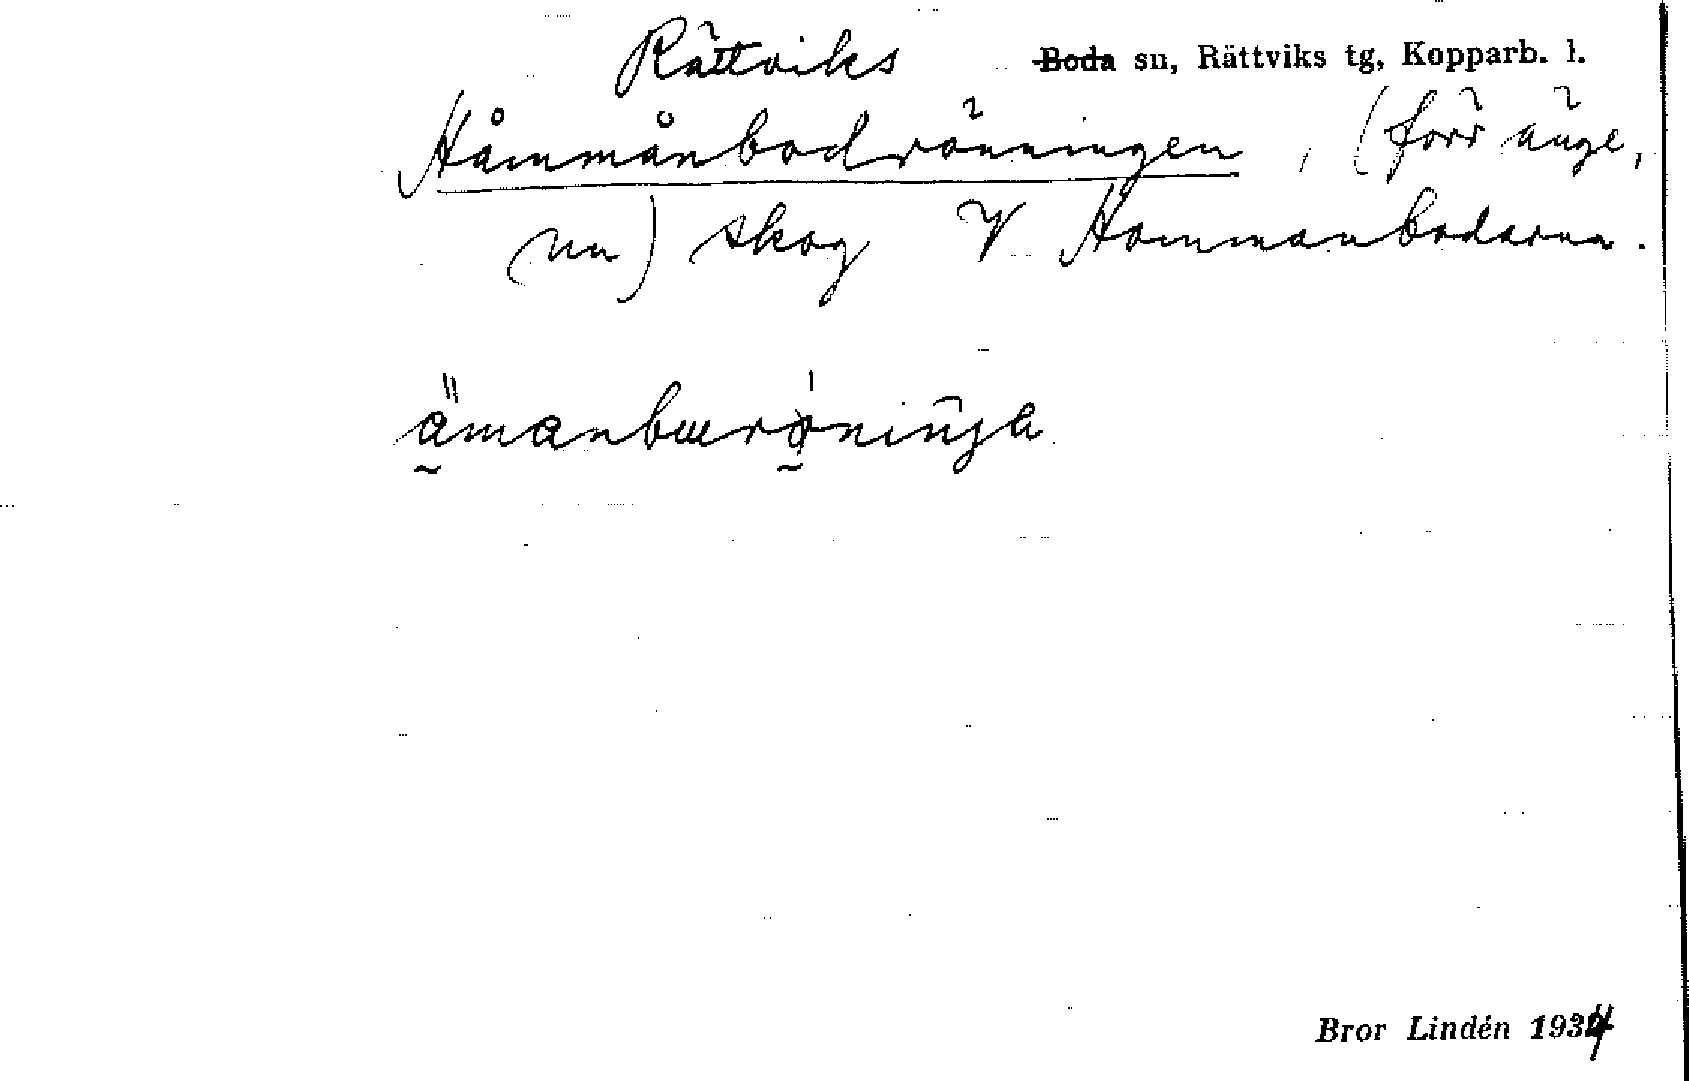 Rättviks ~~Boda~~ sn, Rättviks tg, Kopparb. l.
Håmmånbodrönningen, (förr änge,
nu) skog V Hommanbodarna.
ämanbɯrøniŋa
Bror Lindén 1934